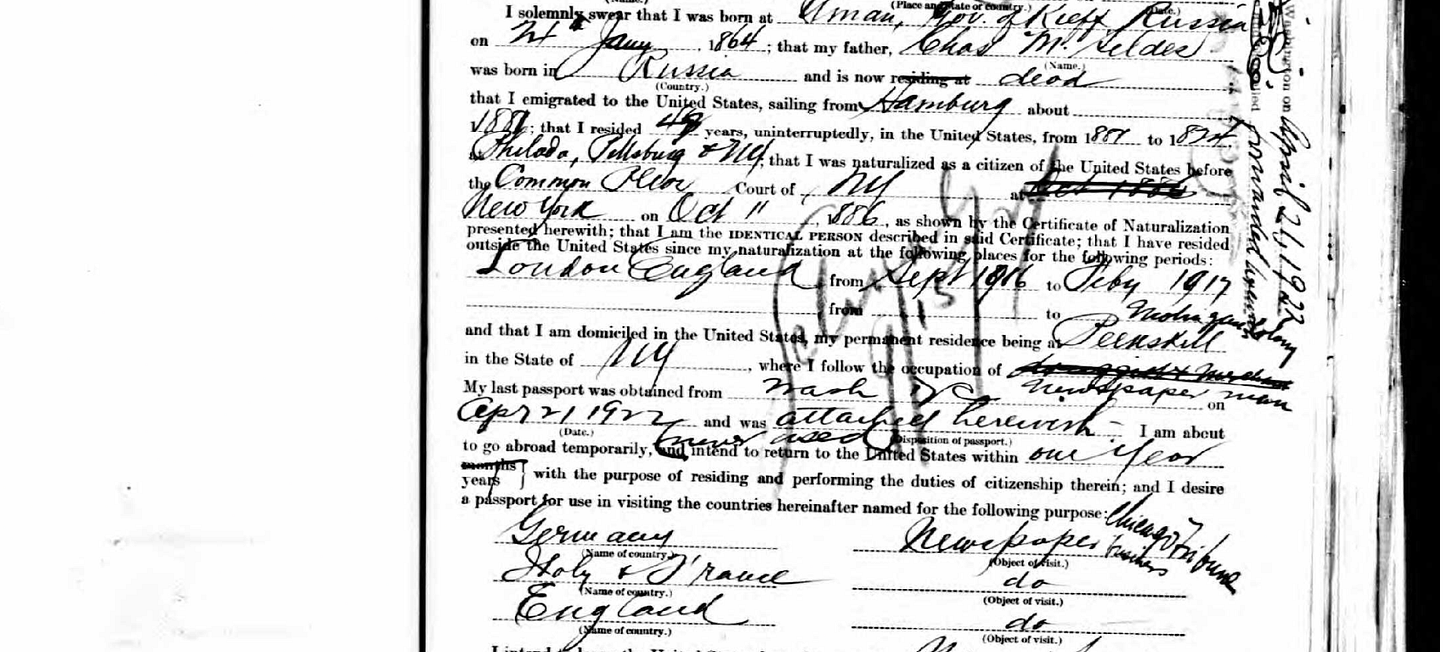 (Place and State or country.) (Date.)
I solemnly swear that I was born at Uman, Gov. of Kieff Russia
on Jany, 1864; that my father, Chas M. Seldes
(Name.)
was born in Russia and is now residing at dead
(Country.)
that I emigrated to the United States, sailing from Hamburg about
1881; that I resided years, uninterruptedly, in the United States, from 1881 to
Philada, Pittsburg & NY, that I was naturalized as a citizen of the United States before
the Common Pleas Court of NY at Oct 1886
New York on Oct 11, 1886, as shown by the Certificate of Naturalization
presented herewith; that I am the IDENTICAL PERSON described in said Certificate; that I have resided
outside the United States since my naturalization at the following places for the following periods:
London England from Sept 1916 to Feby 1917
from to
Mohegan Colony
and that I am domiciled in the United States, my permanent residence being at Peekskill
in the State of NY, where I follow the occupation of druggist & merchant
My last passport was obtained from Wash DC newspaper man on
Apr 21 1922 and was attached herewith - I am about
(Date.) (never used) (Disposition of passport.)
to go abroad temporarily, and intend to return to the United States within one year
months
years } with the purpose of residing and performing the duties of citizenship therein; and I desire
a passport for use in visiting the countries hereinafter named for the following purpose: Chicago Tribune
Germany Newspaper business
(Name of country.) (Object of visit.)
Italy & France do
(Name of country.) (Object of visit.)
England do
(Name of country.) (Object of visit.)
April 21, 1922